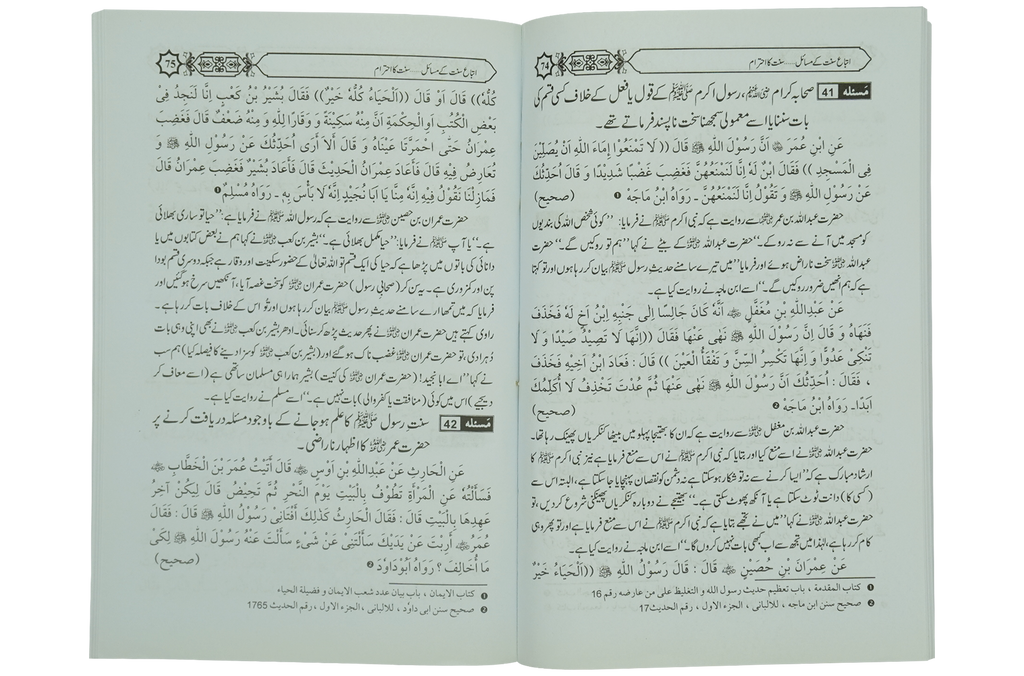 74
اتباع سنت کے مسائل.....سنت کا احترام
مسئلہ 41 صحابہ کرام رضی اللہ عنہم، رسول اکرم ﷺ کے قول یا فعل کے خلاف کسی قسم کی
بات سننا یا اسے معمولی سمجھنا سخت ناپسند فرماتے تھے۔
عَنِ ابْنِ عُمَرَ ﷺ اَنَّ رَسُوْلَ اللّٰهِ ﷺ قَالَ (( لَا تَمْنَعُوْا اِمَاءَ اللّٰهِ اَنْ يُصَلِّيْنَ
فِى الْمَسْجِدِ )) فَقَالَ ابْنٌ لَهُ اِنَّا لَنَمْنَعُهُنَّ فَغَضِبَ غَضَبًا شَدِيْدًا وَ قَالَ اُحَدِّثُكَ
عَنْ رَسُوْلِ اللّٰهِ ﷺ وَ تَقُوْلُ اِنَّا لَنَمْنَعُهُنَّ ۔ رَوَاهُ ابْنُ مَاجَهْ ❶ (صحيح)
حضرت عبداللہ بن عمر رضی اللہ عنہ سے روایت ہے کہ نبی اکرم ﷺ نے فرمایا: ”کوئی شخص اللہ کی بندیوں
کو مسجد میں آنے سے نہ روکے۔“ حضرت عبداللہ رضی اللہ عنہ کے بیٹے نے کہا ”ہم تو روکیں گے۔“ حضرت
عبداللہ رضی اللہ عنہ سخت ناراض ہوئے اور فرمایا ”میں تیرے سامنے حدیث رسول ﷺ بیان کر رہا ہوں اور تو کہتا
ہے کہ ہم انھیں ضرور روکیں گے۔“ اسے ابن ماجہ نے روایت کیا ہے۔
عَنْ عَبْدِاللّٰهِ بْنِ مُغَفَّلٍ ﷺ اَنَّهُ كَانَ جَالِسًا اِلٰى جَنْبِهِ ابْنُ اَخٍ لَهُ فَخَذَفَ
فَنَهَاهُ وَ قَالَ اِنَّ رَسُوْلَ اللّٰهِ ﷺ نَهٰى عَنْهَا فَقَالَ ((اِنَّهَا لَا تَصِيْدُ صَيْدًا وَ لَا
تَنْكِى عَدُوًّا وَ اِنَّهَا تَكْسِرُ السِّنَّ وَ تَفْقَأُ الْعَيْنَ )) قَالَ : فَعَادَ ابْنُ اَخِيْهِ فَخَذَفَ
، فَقَالَ : اُحَدِّثُكَ اَنَّ رَسُوْلَ اللّٰهِ ﷺ نَهٰى عَنْهَا ثُمَّ عُدْتَ تَخْذِفُ لَا اُكَلِّمُكَ
اَبَدًا۔ رَوَاهُ ابْنُ مَاجَهْ ❷ (صحيح)
حضرت عبداللہ بن مغفل رضی اللہ عنہ سے روایت ہے کہ ان کا بھتیجا پہلو میں بیٹھا کنکریاں پھینک رہا تھا۔
حضرت عبداللہ رضی اللہ عنہ نے اسے منع کیا اور بتایا کہ نبی اکرم ﷺ نے اس سے منع فرمایا ہے نیز نبی اکرم ﷺ کا
ارشاد مبارک ہے کہ ”ایسا کرنے سے نہ تو شکار ہو سکتا ہے نہ دشمن کو نقصان پہنچایا جا سکتا ہے، البتہ اس سے
(کسی کا) دانت ٹوٹ سکتا ہے یا آنکھ پھوٹ سکتی ہے۔“ بھتیجے نے دوبارہ کنکریاں پھینکنی شروع کر دیں، تو
حضرت عبداللہ رضی اللہ عنہ نے کہا ”میں نے تجھے بتایا ہے کہ نبی اکرم ﷺ نے اس سے منع فرمایا ہے اور تو پھر وہی
کام کر رہا ہے، لہٰذا میں تجھ سے اب کبھی بات نہیں کروں گا۔“ اسے ابن ماجہ نے روایت کیا ہے۔
عَنْ عِمْرَانَ بْنِ حُصَيْنٍ ﷺ قَالَ : قَالَ رَسُوْلُ اللّٰهِ ﷺ ((اَلْحَيَاءُ خَيْرٌ
❶ كتاب المقدمة ، باب تعظيم حديث رسول الله و التغليظ على من عارضه رقم 16
❷ صحيح سنن ابن ماجه ، للالبانى ، الجزء الاول ، رقم الحديث 17
75
اتباع سنت کے مسائل.....سنت کا احترام
كُلُّهُ)) قَالَ اَوْ قَالَ ((اَلْحَيَاءُ كُلُّهُ خَيْرٌ)) فَقَالَ بُشَيْرُ بْنُ كَعْبٍ اِنَّا لَنَجِدُ فِى
بَعْضِ الْكُتُبِ اَوِ الْحِكْمَةِ اَنَّ مِنْهُ سَكِيْنَةً وَ وَقَارًا لِلّٰهِ وَ مِنْهُ ضَعْفٌ قَالَ فَغَضِبَ
عِمْرَانُ حَتّٰى احْمَرَّتَا عَيْنَاهُ وَ قَالَ اَلَا اَرٰى اُحَدِّثُكَ عَنْ رَسُوْلِ اللّٰهِ ﷺ وَ
تُعَارِضُ فِيْهِ قَالَ فَاَعَادَ عِمْرَانُ الْحَدِيْثَ قَالَ فَاَعَادَ بُشَيْرٌ فَغَضِبَ عِمْرَانُ قَالَ
فَمَازِلْنَا نَقُوْلُ فِيْهِ اِنَّهُ مِنَّا يَا اَبَا نُجَيْدٍ اِنَّهُ لَا بَأْسَ بِهِ ۔ رَوَاهُ مُسْلِمٌ ❶
حضرت عمران بن حصین رضی اللہ عنہ سے روایت ہے کہ رسول اللہ ﷺ نے فرمایا ہے: ”حیا تو ساری بھلائی
ہے۔“ یا آپ ﷺ نے فرمایا: ”حیا مکمل بھلائی ہے۔“ بشیر بن کعب رضی اللہ عنہ نے کہا ہم نے بعض کتابوں میں یا
دانائی کی باتوں میں پڑھا ہے کہ حیا کی ایک قسم تو اللہ تعالیٰ کے حضور سکینت اور وقار ہے جبکہ دوسری قسم بودا
پن اور کمزوری ہے۔ یہ سن کر (صحابی رسول) حضرت عمران رضی اللہ عنہ کو سخت غصہ آیا، آنکھیں سرخ ہو گئیں اور
فرمایا کہ میں تمھارے سامنے حدیث رسول ﷺ بیان کر رہا ہوں اور تو اس کے خلاف بات کر رہا ہے۔
راوی کہتے ہیں حضرت عمران رضی اللہ عنہ نے پھر حدیث پڑھ کر سنائی۔ ادھر بشیر بن کعب رضی اللہ عنہ نے بھی اپنی وہی بات
دُہرا دی، تو حضرت عمران رضی اللہ عنہ غضب ناک ہو گئے اور (بشیر بن کعب رضی اللہ عنہ کو سزا دینے کا فیصلہ کیا) ہم سب
نے کہا ”اے ابا نجید! (حضرت عمران رضی اللہ عنہ کی کنیت) بشیر ہمارا ہی مسلمان ساتھی ہے (اسے معاف کر
دیجیے) اس میں کوئی (منافقت یا کفر والی) بات نہیں ہے۔“ اسے مسلم نے روایت کیا ہے۔
مسئلہ 42 سنت رسول ﷺ کا علم ہو جانے کے باوجود مسئلہ دریافت کرنے پر
حضرت عمر رضی اللہ عنہ کا اظہار ناراضی۔
عَنِ الْحَارِثِ عَنْ عَبْدِاللّٰهِ بْنِ اَوْسٍ ﷺ قَالَ اَتَيْتُ عُمَرَ بْنَ الْخَطَّابِ ﷺ
فَسَأَلْتُهُ عَنِ الْمَرْأَةِ تَطُوْفُ بِالْبَيْتِ يَوْمَ النَّحْرِ ثُمَّ تَحِيْضُ قَالَ لِيَكُنْ آخِرُ
عَهْدِهَا بِالْبَيْتِ قَالَ : فَقَالَ الْحَارِثُ كَذٰلِكَ اَفْتَانِىْ رَسُوْلُ اللّٰهِ ﷺ قَالَ : فَقَالَ
عُمَرُ ﷺ اَرِبْتَ عَنْ يَدَيْكَ سَأَلْتَنِىْ عَنْ شَىْءٍ سَأَلْتَ عَنْهُ رَسُوْلَ اللّٰهِ ﷺ لِكَىْ
مَا اُخَالِفَ ؟ رَوَاهُ اَبُوْدَاوٗدَ ❷ (صحيح)
❶ كتاب الايمان ، باب بيان عدد شعب الايمان و فضيلة الحياء
❷ صحيح سنن ابى داؤد ، للالبانى ، الجزء الاول ، رقم الحديث 1765